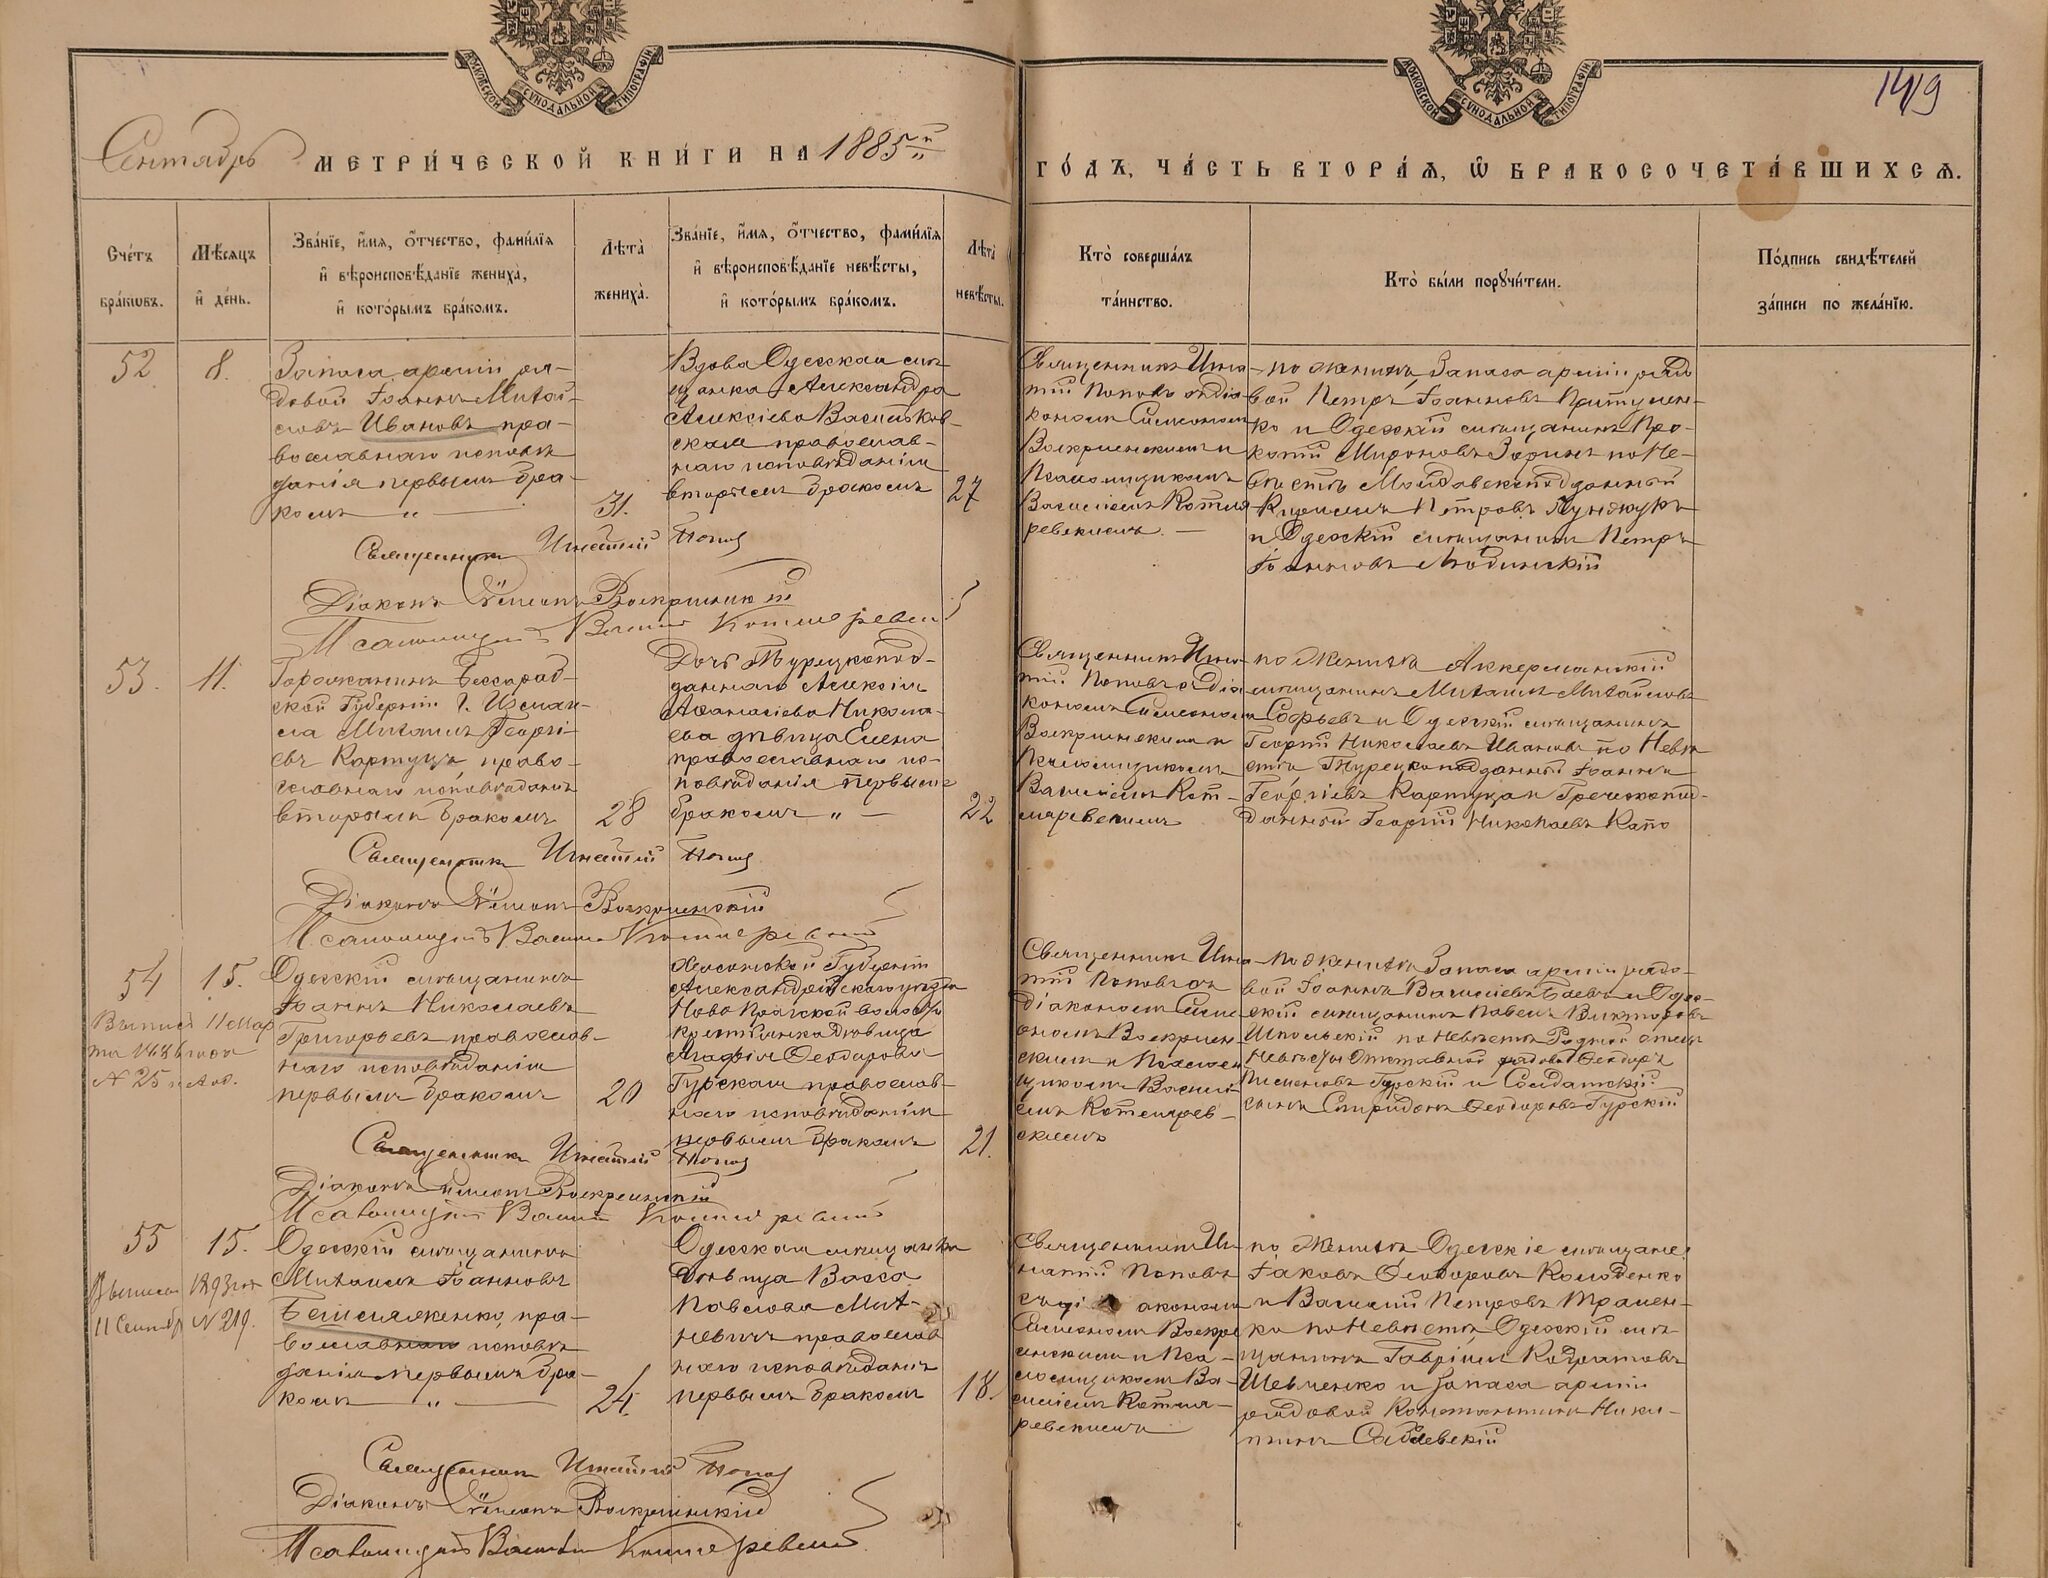 МОСКОВСКОЙ СѴНОДАЛЬНОЙ ТИПОГРАФІИ
МОСКОВСКОЙ СѴНОДАЛЬНОЙ ТИПОГРАФІИ
1419
Сентябрь МЕТРИ́ЧЕСКОЙ КНИ́ГИ НА 1885й
ГО́ДЪ, ЧА́СТЬ ВТОРА́Ѧ, Ѡ БРАКОСОЧЕТА́ВШИХСѦ.
Сче́тъ бра́кѡвъ.
Мѣ́сѧцъ и де́нь.
Зва́нїе, и́мѧ, ѻ́тчество, фами́лїѧ и вѣроисповѣ́данїе жениха̀, и кото́рымъ бра́комъ.
Лѣта̀ жениха̀.
Зва́нїе, и́мѧ, ѻ́тчество, фами́лїѧ и вѣроисповѣ́данїе невѣ́сты, и кото́рымъ бра́комъ.
Лѣта̀ невѣ́сты.
Кто̀ соверша́лъ та́инство.
Кто̀ бы́ли порꙋчи́тели.
По́дпись свидѣ́телей за́писи по жела́нїю.
52
8.
Запаса арміи ря-
довой Іоаннъ Михай-
ловъ Ивановъ пра-
вославнаго исповѣ
данія первымъ бра-
комъ „ —
31.
Вдова Одесская мѣ
щанка Александра
Алексіева Васильков-
ская православ-
наго исповѣданія
вторымъ бракомъ
27
Священникъ Игна
тій Поповъ съ діа-
кономъ Симеономъ
Воскресенскимъ и
Псаломщикомъ
Василіемъ Котля
ревскимъ. —
по женихѣ Запаса арміи рядо
вой Петръ Іоанновъ
и Одесскій мѣщанинъ Про-
копій Мироновъ Зоринъ по Не-
вѣстѣ Молдавскоподданный
Кириллъ Петровъ
и Одесскій мѣщанинъ Петръ
Іоанновъ
Священникъ Игнатій Попов
Діаконъ Симеонъ Воскресенскій
Псаломщикъ Василій Котляревскій
53.
11.
Горожанинъ Бессараб-
ской Губерніи г. Измаи-
ла Михаилъ Георгі-
евъ Картуцъ, право-
славнаго исповѣданія
вторымъ бракомъ
28
Дочь Турецкопод-
даннаго Алексія
Аѳанасіева Никола-
ева дѣвица Елена
православнаго ис-
повѣданія первымъ
бракомъ „ —
22
Священникъ Игна-
тій Поповъ съ діа
кономъ Симеономъ
Воскресенскимъ и
Псаломщикомъ
Василіемъ Кот-
ляревскимъ
по женихѣ Аккерманскій
мѣщанинъ Михаилъ Михайловъ
Софьевъ и Одесскій мѣщанинъ
Георгій Николаевъ Ивановъ по Невѣ
стѣ Турецкоподданный Іоаннъ
Георгіевъ Картуцъ и Греческопод-
данный Георгій Николаевъ Капо
Священникъ Игнатій Попов
Діаконъ Симеонъ Воскресенскій
Псаломщикъ Василій Котляревскій
54
15.
№ 25
Одесскій мѣщанинъ
Іоаннъ Николаевъ
Григорьевъ православ-
наго исповѣданія
первымъ бракомъ
20
Херсонской Губерніи
Александрійскаго уѣзда
Ново Пражской волости
крестьянка дѣвица
Агафія Ѳеодорова
Гурская православ-
наго исповѣданія
первымъ бракомъ
21.
Священникъ Игна
тій Поповъ съ
діакономъ Симе
ономъ Воскресен
скимъ и Псалом
щикомъ Василі
емъ Котлярев-
скимъ
по женихѣ Запаса арміи рядо-
вой Іоаннъ Василіевъ Баевъ и Одес-
скій мѣщанинъ Павелъ Викторовъ
по Невѣстѣ Родной отецъ
Невѣсты Отставной рядовой Ѳеодоръ
Гурскій и Солдатскій
сынъ Спиридонъ Ѳеодоровъ Гурскій
Священникъ Игнатій Попов
Діаконъ Симеонъ Воскресенскій
Псаломщикъ Василій Котляревскій
55
15.
1893 года
11 Сентяб № 219.
Одесскій мѣщанинъ
Михаилъ Іоанновъ
пра-
вославнаго исповѣ
данія первымъ бра-
комъ „ —
24.
Одесская мѣщанка
дѣвица Васса
Павлова Мих-
невичъ православ
наго исповѣданія
первымъ бракомъ
18.
Священникъ Иг-
натій Поповъ
съ діакономъ
Симеономъ Воскре
сенскимъ и Пса-
ломщикомъ Ва-
силіемъ Котля-
ревскимъ
по женихѣ Одесскіе мѣщане:
Іаковъ Ѳеодоровъ Колоденко
и Василій Петровъ
по Невѣстѣ Одесскій мѣ-
щанинъ Гавріилъ Кодратовъ
Шевченко и Запаса арміи
рядовой Константинъ Ники-
тинъ
Священникъ Игнатій Попов
Діаконъ Симеонъ Воскресенскій
Псаломщикъ Василій Котляревскій